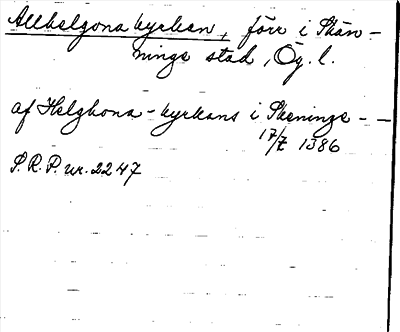 Allhelgona kyrkan, förr i Skän-
nings stad, Ög. l.
af Helghona-kyrkans i Skeninge - -
17/7 1386
S.R.P. nr. 2247